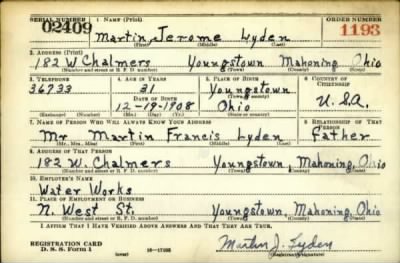 SERIAL NUMBER 1. NAME (Print) ORDER NUMBER
02409 Martin Jerome Lyden 1193
(First) (Middle) (Last)
2. ADDRESS (Print)
182 W Chalmers Youngstown Mahoning Ohio
(Number and street or R. F. D. number) (Town) (County) (State)
3. TELEPHONE 4. AGE IN YEARS 5. PLACE OF BIRTH 6. COUNTRY OF CITIZENSHIP
36733 31 Youngstown
DATE OF BIRTH (Town or county)
12-19-1908 Ohio U.S.A.
(Exchange) (Number) (Mo.) (Day) (Yr.) (State or country)
7. NAME OF PERSON WHO WILL ALWAYS KNOW YOUR ADDRESS 8. RELATIONSHIP OF THAT PERSON
Mr Martin Francis Lyden Father
(Mr., Mrs., Miss) (First) (Middle) (Last)
9. ADDRESS OF THAT PERSON
182 W. Chalmers Youngstown, Mahoning, Ohio
(Number and street or R. F. D. number) (Town) (County) (State)
10. EMPLOYER'S NAME
Water Works
11. PLACE OF EMPLOYMENT OR BUSINESS
N. West St. Youngstown, Mahoning, Ohio
(Number and street or R. F. D. number) (Town) (County) (State)
I AFFIRM THAT I HAVE VERIFIED ABOVE ANSWERS AND THAT THEY ARE TRUE.
REGISTRATION CARD
D. S. S. Form 1 (over) Martin J. Lyden
(Registrant's signature)